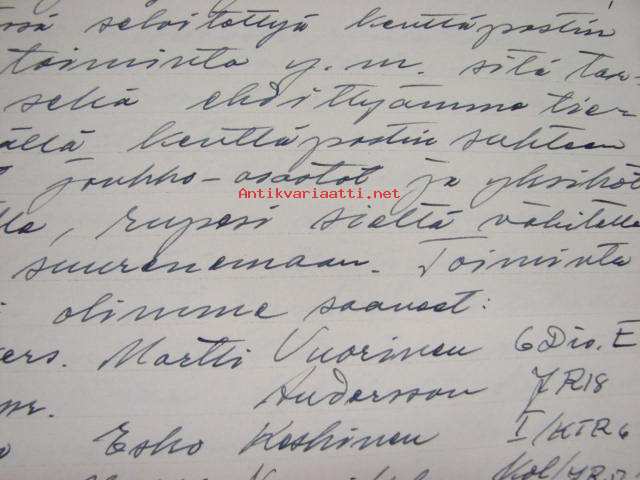 selvitettyä kenttäpostin
toiminta y.m. sitä
sekä ehdittyämme tie-
kenttäpostin suhteen
joukko-osastot ja yksiköt
Antikvariaatti.net
, rupesi sieltä vähitellen
suurenemaan. Toiminta
olimme saaneet:
ers. Martti Vuorinen 6 Div. E
Andersson JR18
Esko Keskinen I/KTR 6
Kol/JR